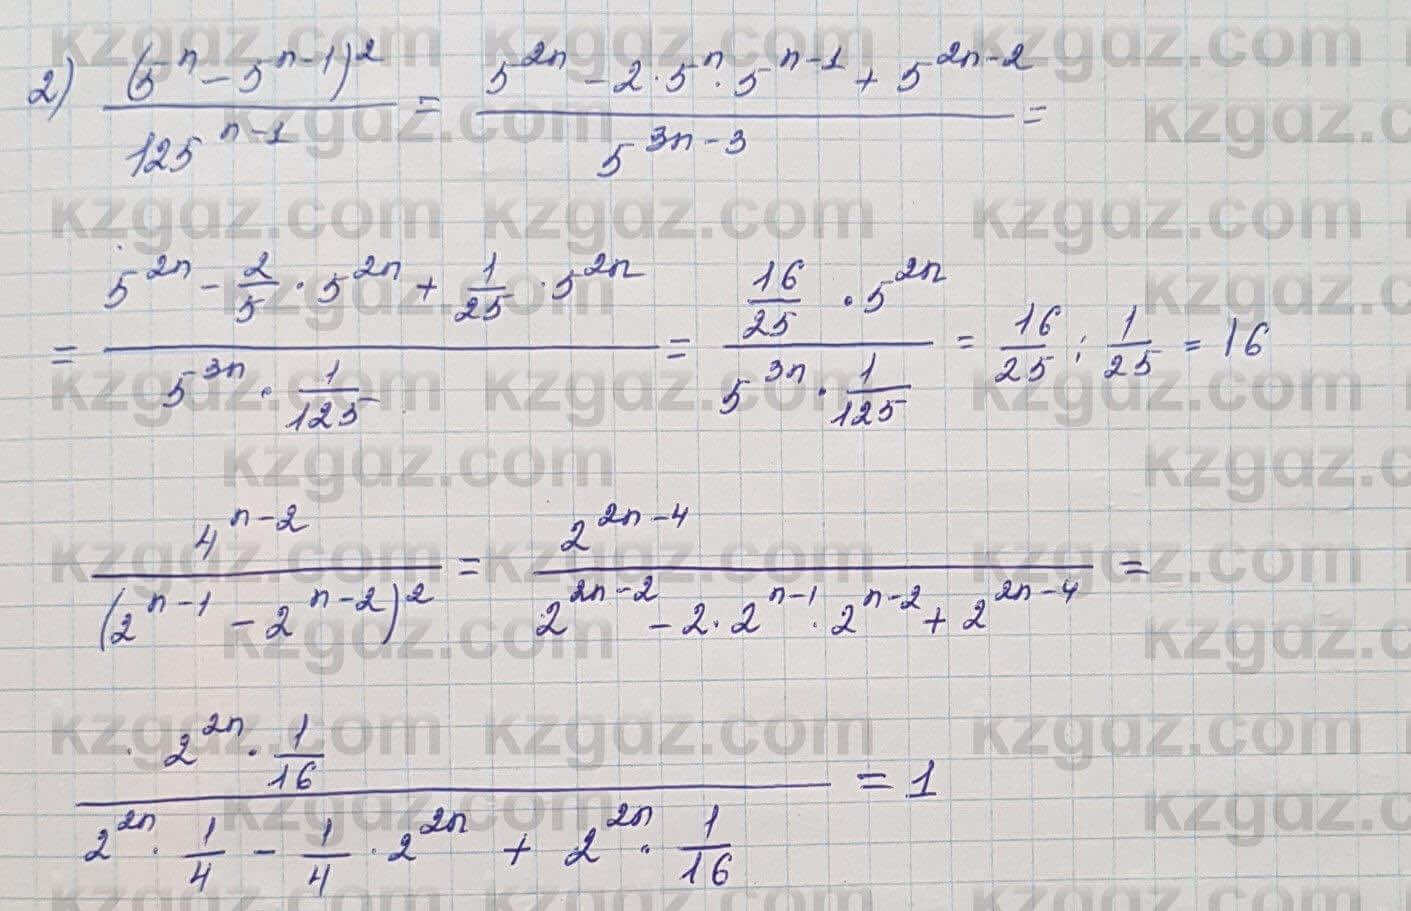 2) (5^n - 5^{n-1})^2 / 125^{n-1} = (5^{2n} - 2·5^n·5^{n-1} + 5^{2n-2}) / 5^{3n-3} =
= (5^{2n} - 2/5 · 5^{2n} + 1/25 · 5^{2n}) / (5^{3n} · 1/125) = (16/25 · 5^{2n}) / (5^{3n} · 1/125) = 16/25 : 1/25 = 16
4^{n-2} / (2^{n-1} - 2^{n-2})^2 = 2^{2n-4} / (2^{2n-2} - 2·2^{n-1}·2^{n-2} + 2^{2n-4}) =
(2^{2n} · 1/16) / (2^{2n} · 1/4 - 1/4 · 2^{2n} + 2^{2n} · 1/16) = 1
kzgdz.com